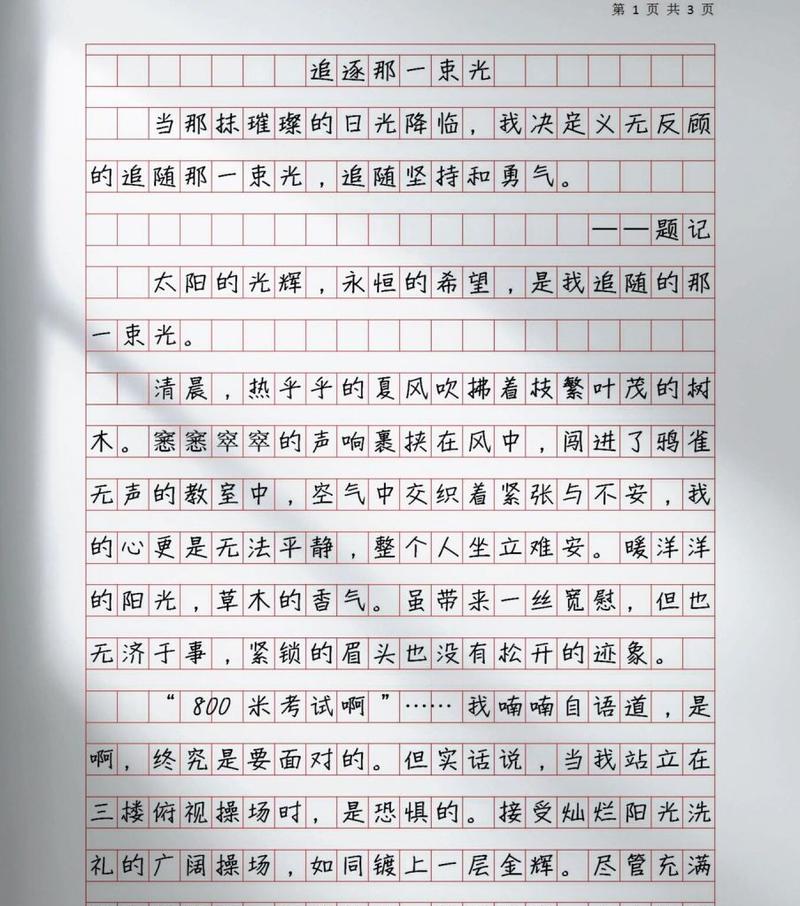 第 1 页 共 3 页
追逐那一束光
当那抹璀璨的日光降临，我决定义无反顾
的追随那一束光，追随坚持和勇气。
——题记
太阳的光辉，永恒的希望，是我追随的那
一束光。
清晨，热乎乎的夏风吹拂着枝繁叶茂的树
木。窸窸窣窣的声响裹挟在风中，闯进了鸦雀
无声的教室中，空气中交织着紧张与不安，我
的心更是无法平静，整个人坐立难安。暖洋洋
的阳光，草木的香气。虽带来一丝宽慰，但也
无济于事，紧锁的眉头也没有松开的迹象。
“800米考试啊”……我喃喃自语道，是
啊，终究是要面对的。但实话说，当我站立在
三楼俯视操场时，是恐惧的。接受灿烂阳光洗
礼的广阔操场，如同镀上一层金辉。尽管充满